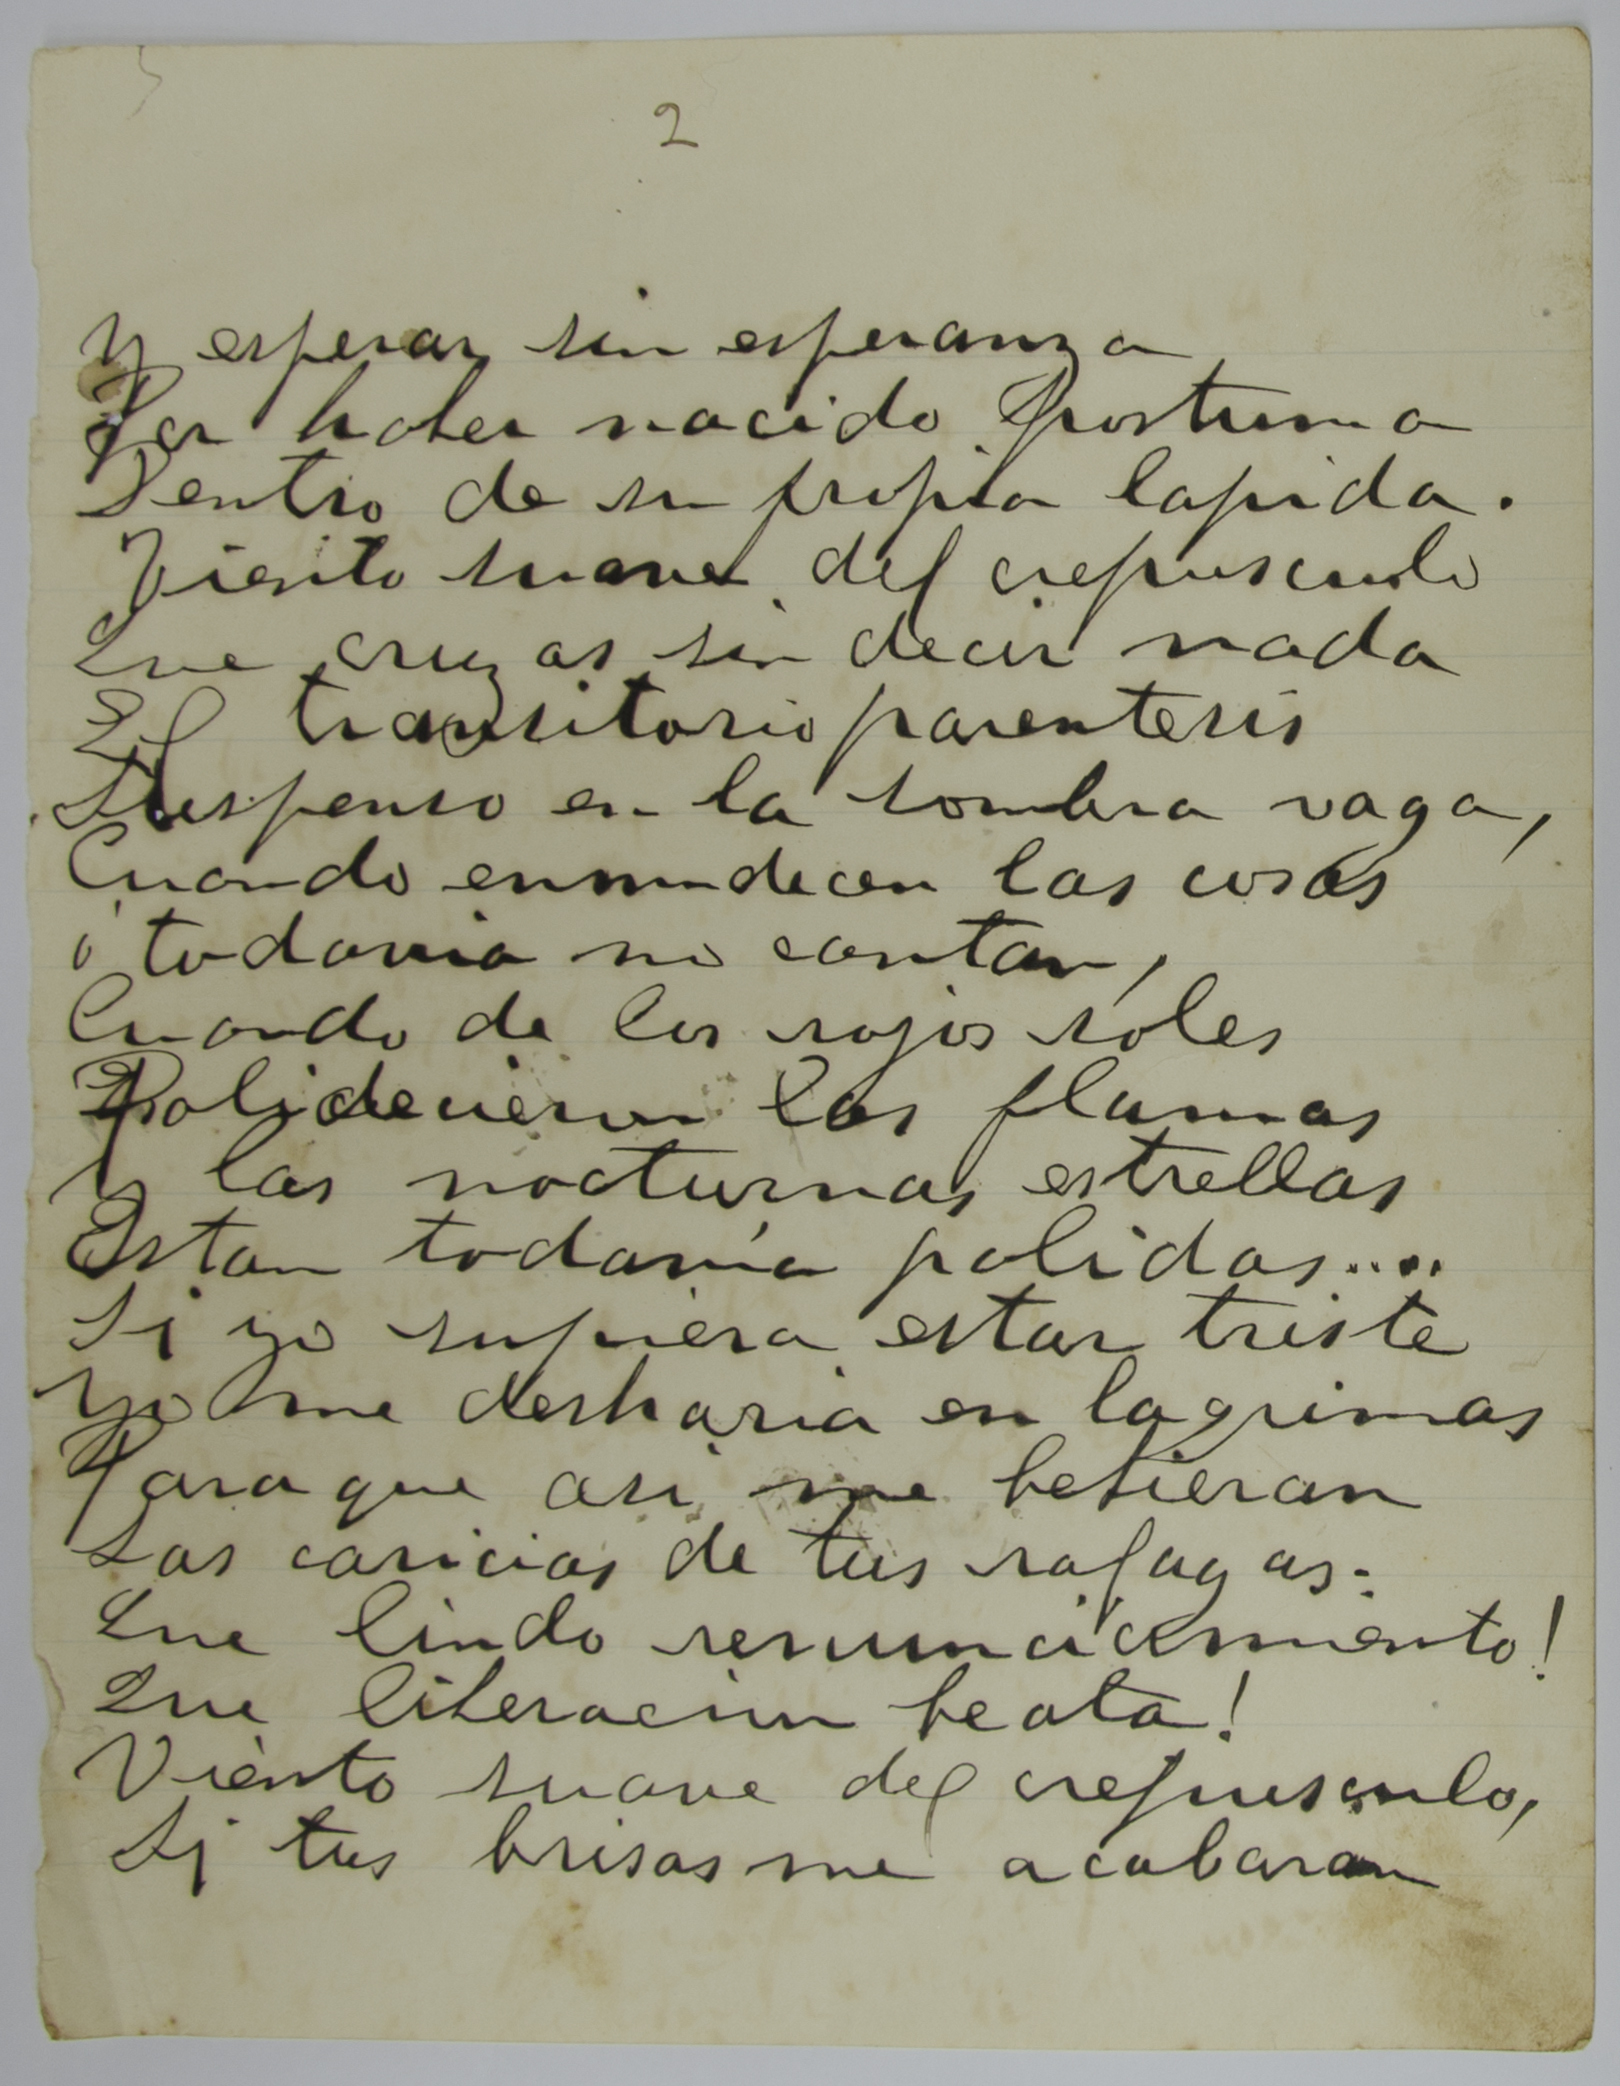 2
Y esperar sin esperanza
Por haber nacido postuma
Dentro de su propia lapida.
Viento suave del crepusculo
Que cruzas sin decir nada
El transitorio parentesis
Suspenso en la sombra vaga,
Cuando enmudecen las cosas
ó todavia no cantan,
Cuando de los rojos soles
Palidecieron las flamas
Y las nocturnas estrellas
Estan todavía palidas....
Si yo supiera estar triste
Yo me desharia en lagrimas
Para que asi me bebieran
Las caricias de tus rafagas.
Que lindo renunciamiento!
Que liberacion beata!
Viento suave del crepusculo,
Si tus brisas me acabaran